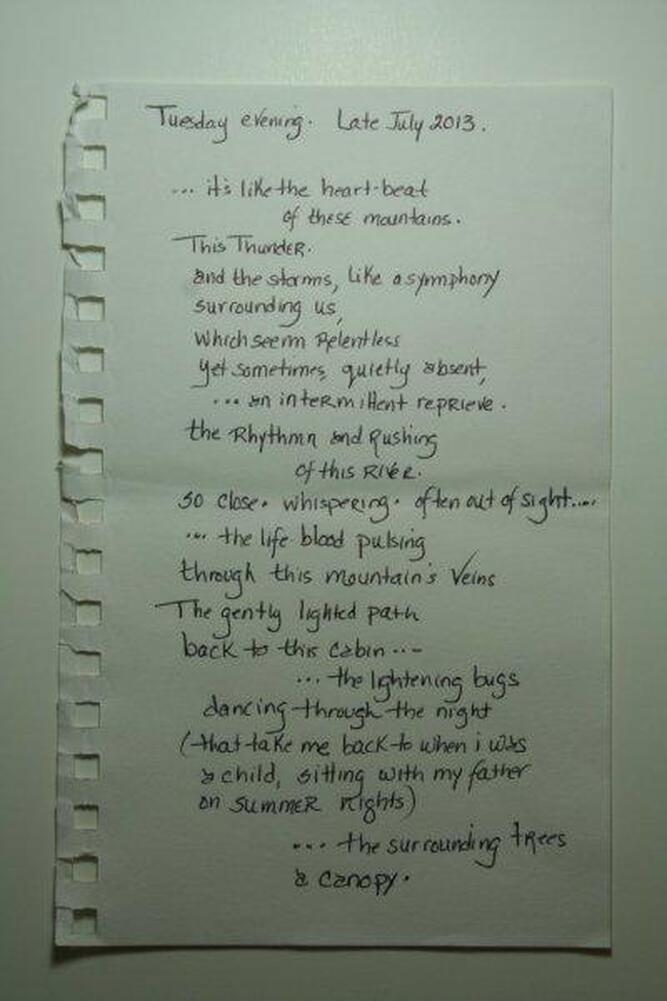 Tuesday evening. Late July 2013.
... it's like the heart-beat
of these mountains.
This Thunder.
and the storms, like a symphony
surrounding us,
which seem relentless
yet sometimes, quietly absent,
... an intermittent reprieve.
the Rhythmn and Rushing
of this River.
so close. whispering. often out of sight....
... the life blood pulsing
through this mountain's veins
The gently lighted path
back to this cabin ...
... the lightening bugs
dancing through the night
(that take me back to when i was
a child, sitting with my father
on summer nights)
... the surrounding trees
a canopy.